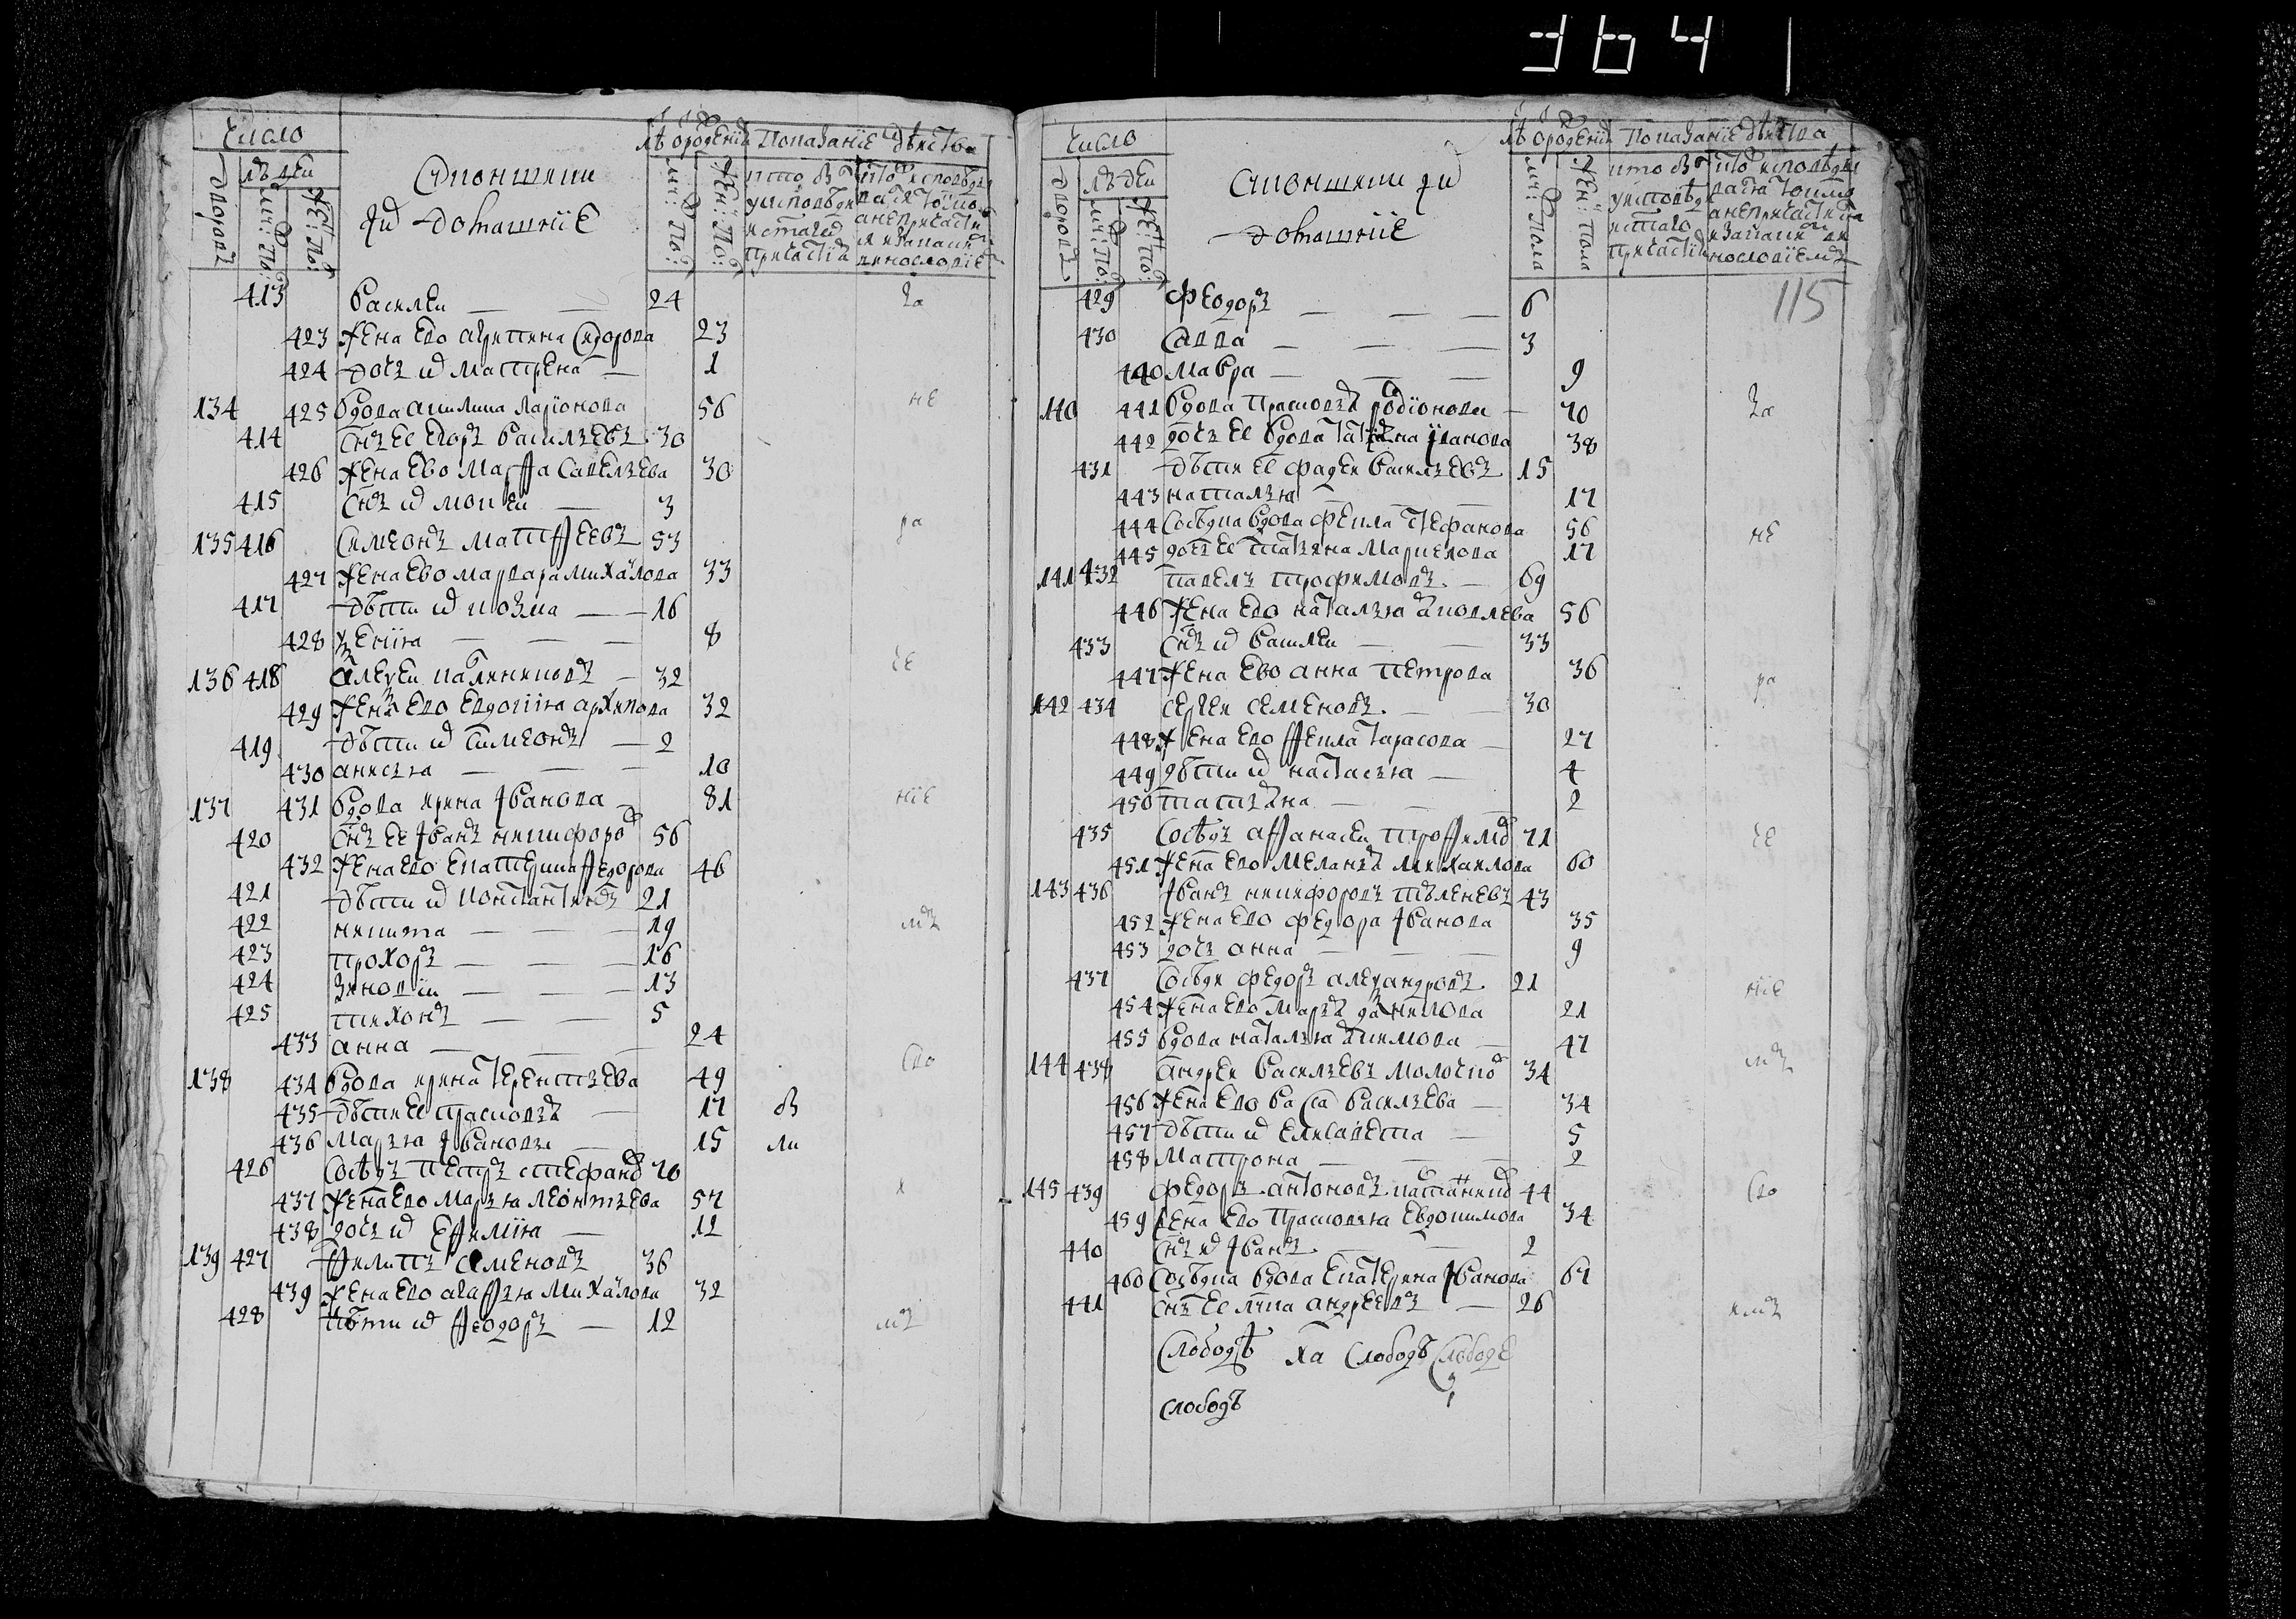 364
Число
Лѣ ѿ рожденїѧ
Показанїе дѣйства
Дворовъ
Людей
Мꙋ: По:
Жен: По:
Однокошцы
и ихъ домашнїе
413 Василеи — 24 за
423 Жена ево агрипина Сидорова 23
424 дочь их Матрена — 1
134 425 Вдова акилина ларионова 56 не
414 Снъ ее егоръ васильевъ 30
426 Жена ево Марфа Савельева 30
415 Снъ их мокеи — 3
135 416 Симеонъ Матфеевъ 53 ра
427 Жена ево марвара михаилова 33
417 дѣти их козма — 16
428 ѯениѧ — 8
136 418 Алеѯеи калиниковъ — 32 че
429 Жена ево евдокиѧ архипова 32
419 дѣти их симеонъ — 2
430 анисьѧ — 10
137 431 Вдова ирина Iванова 81 нїе
420 Снъ ее Iванъ никифоров 56
432 Жена ево екатерина федорова 46
421 дѣти их константинъ 21
422 никита — 19 мъ
423 прохоръ — 16
424 Зиновїи — 13
425 тихонъ — 5
433 анна — 24
138 434 Вдова ирина терентьева 49 сло
435 дѣти ее прасковьѧ — 17 бы
436 Марьѧ Iвановы — 15 ли
426 Сосѣдъ петръ стефанов 70
437 Жена ево марьѧ леонтьева 57
438 дочь их ефимїѧ — 12
139 427 филипъ семеновъ 36
439 Жена ево агафьѧ михаилова 32
428 дѣти их феодоръ — 12 мъ
Число
Лѣ ѿ рожденїѧ
Показанїе дѣйства
Дворовъ
Людей
Мꙋ: Пола
Жен: Пола
Однокошцы и их
домашнїе
115
429 Феодоръ — 6
430 Савва — 3
440 Мавра — 9
140 441 Вдова Прасковьѧ родїонова — 70 за
442 дочь ее вдова татьѧна iванова 38
431 дѣти ее фадеи василъевъ 15
443 наталъѧ — 17
444 Сосѣдка вдова фекла стефанова 56 не
445 дочь ее татиѧна Маркелова 17
141 432 павелъ трофимовъ. — 69
446 Жена ево наталъѧ ꙗковлева 56
433 Снъ их василеи — 33
447 Жена ево анна петрова 36
142 434 Сергеи семеновъ. — 30 ра
448 Жена ево фекла тарасова — 27
449 дѣти их настасьѧ — 4
450 татиѧна — 2
435 Сосѣдъ афанасеи трофимов 71 че
451 Жена ево меланьѧ михаилова 60
143 436 Iванъ никифоровъ тѣленевъ 43
452 Жена ево федора Iванова 35
453 дочь анна — 9
437 Сосѣди федоръ алеѯандровъ. 21 нїе
454 Жена ево марьѧ данилова 21
455 Вдова наталъѧ ꙗкимова — 47
144 438 андреи василъевъ молочков 34 мъ
456 Жена ево васса василъева — 34
457 дѣти их елисавета — 5
458 Матрона — 2
145 439 федоръ антоновъ 44 сло
459 Жена ево прасковьѧ евдокимова 34
440 Снъ их Iванъ. — 2
460 Сосѣдка вдова екатерина Iванова 67
441 Снъ ее лꙋка андреевъ — 26
Слободѣ ха слободѣ слободе
слободѣ